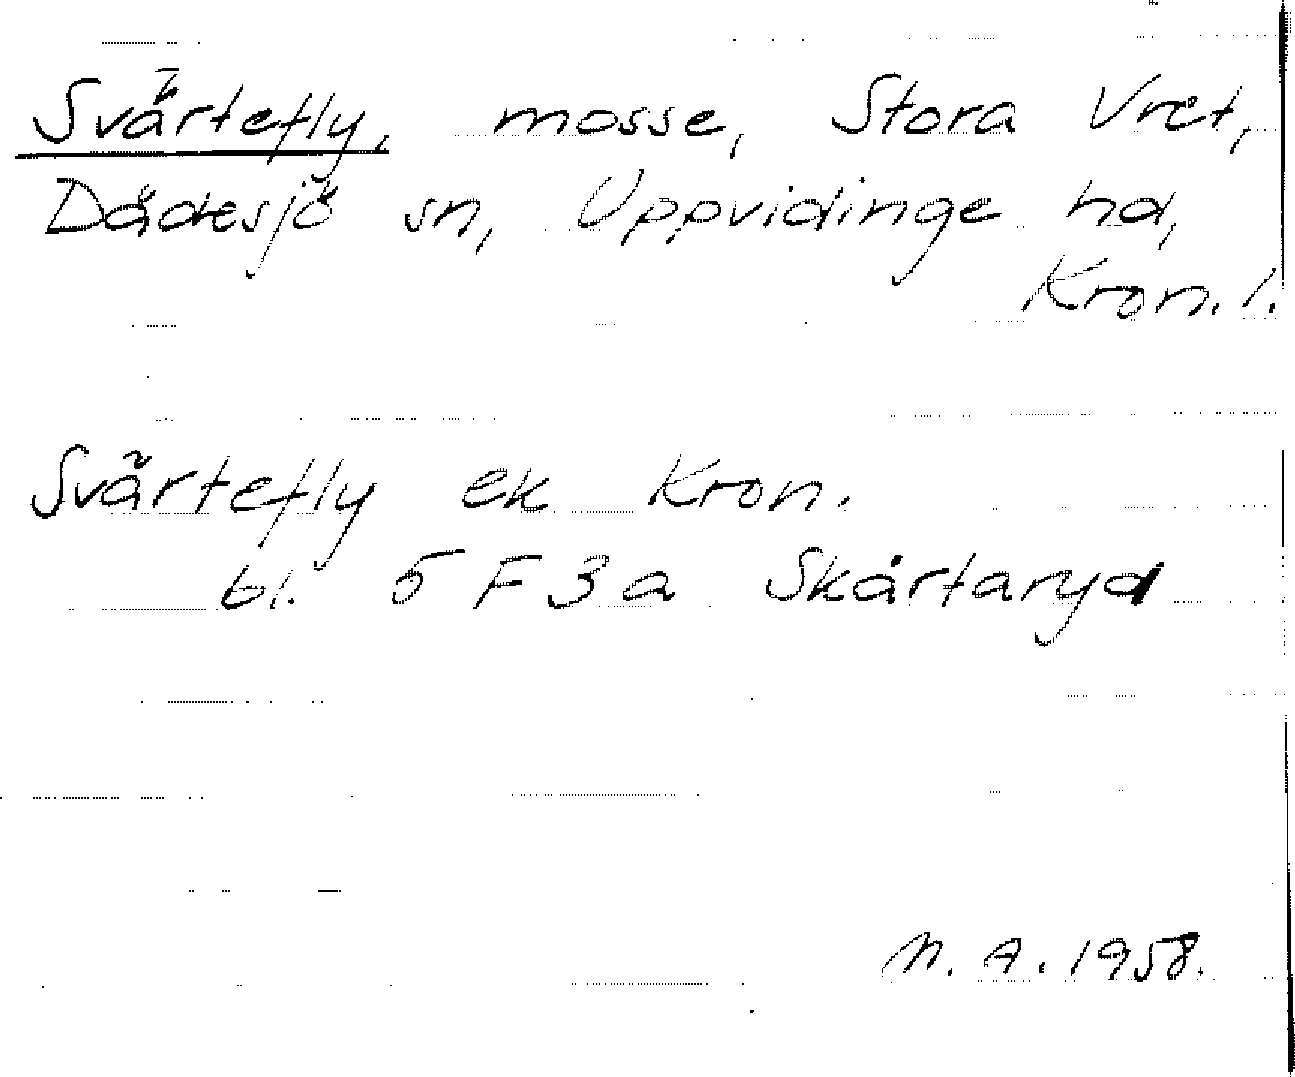 Svärtefly, mosse, Stora Vret,
Dädesjö sn, Uppvidinge hd,
Kron. l.
Svärtefly ek Kron.
bl. 5 F 3 a Skårtaryd
N. A. 1958.